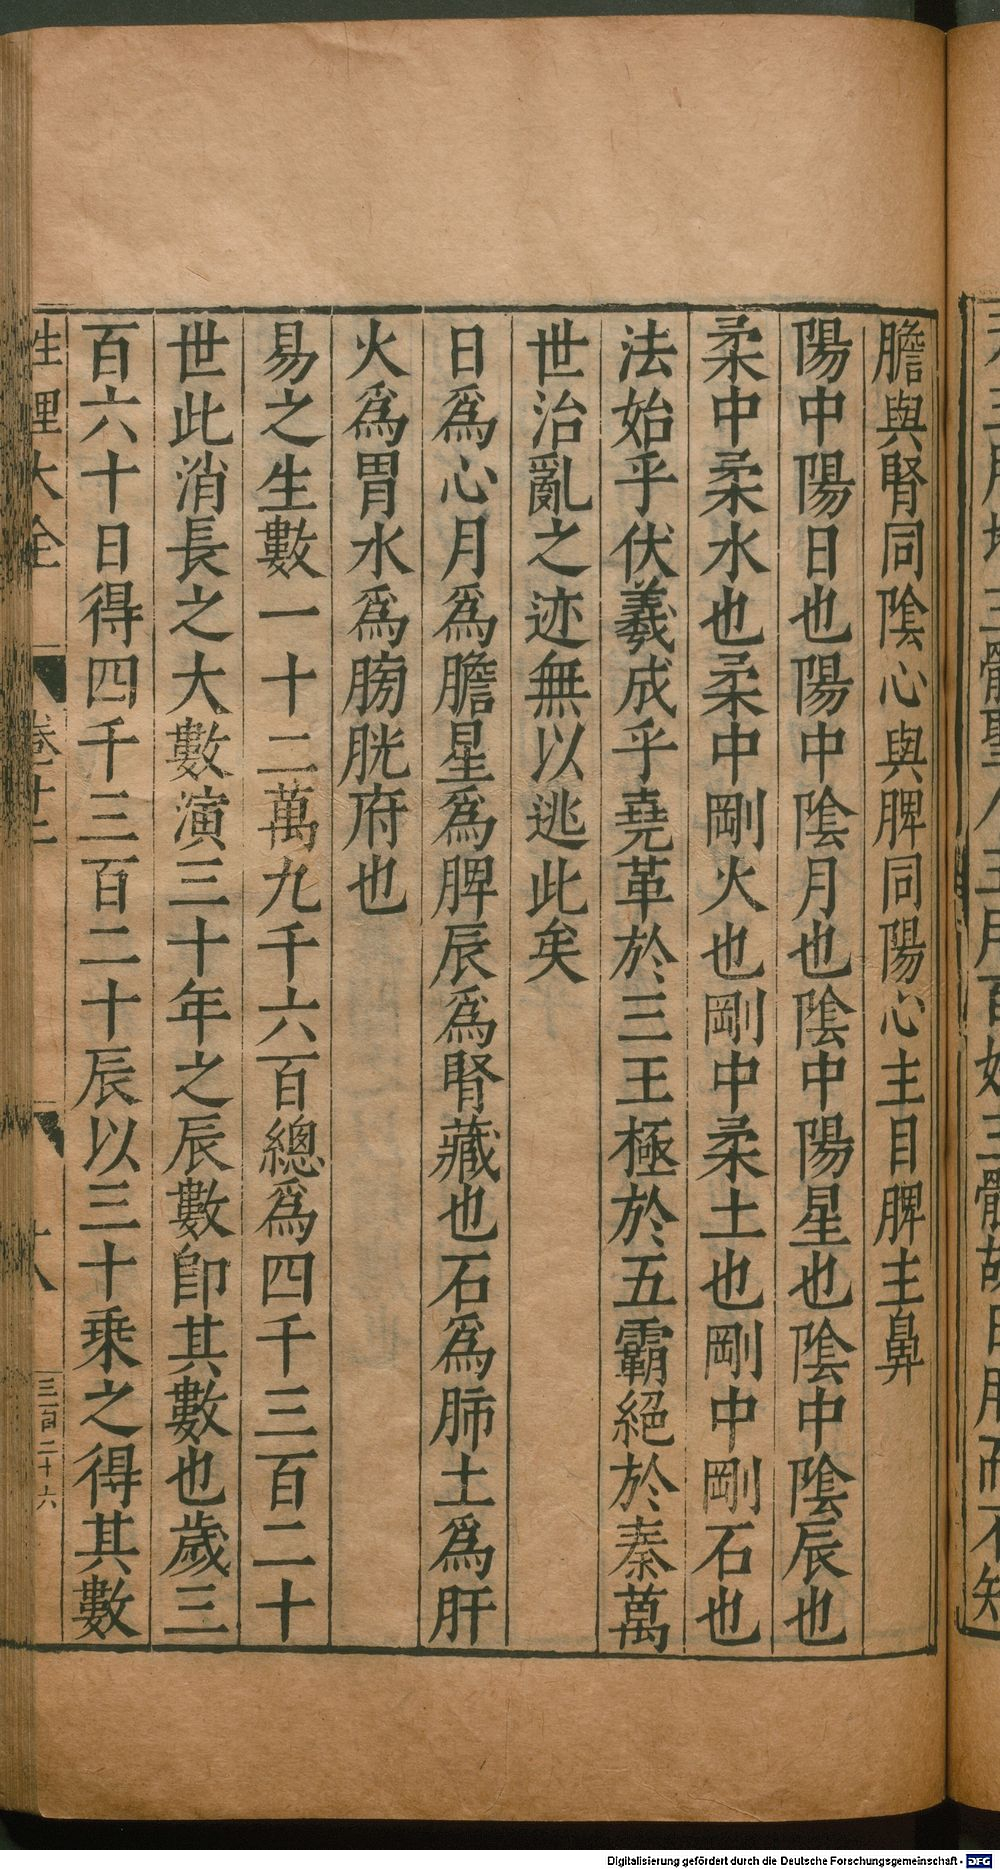 膽與腎同陰心與脾同陽心主目脾主鼻
陽中陽日也陽中陰月也陰中陽星也陰中陰辰也
柔中柔水也柔中剛火也剛中柔土也剛中剛石也
法始乎伏羲成乎堯革於三王極於五霸絕於秦萬
世治亂之迹無以逃此矣
日爲心月爲膽星爲脾辰爲腎藏也石爲肺土爲肝
火爲胃水爲膀胱府也
易之生數一十二萬九千六百總爲四千三百二十
世此消長之大數演三十年之辰數卽其數也歲三
百六十日得四千三百二十辰以三十乘之得其數
性理大全
卷十二
十八
三百二十六
Digitalisierung gefördert durch die Deutsche Forschungsgemeinschaft - DFG